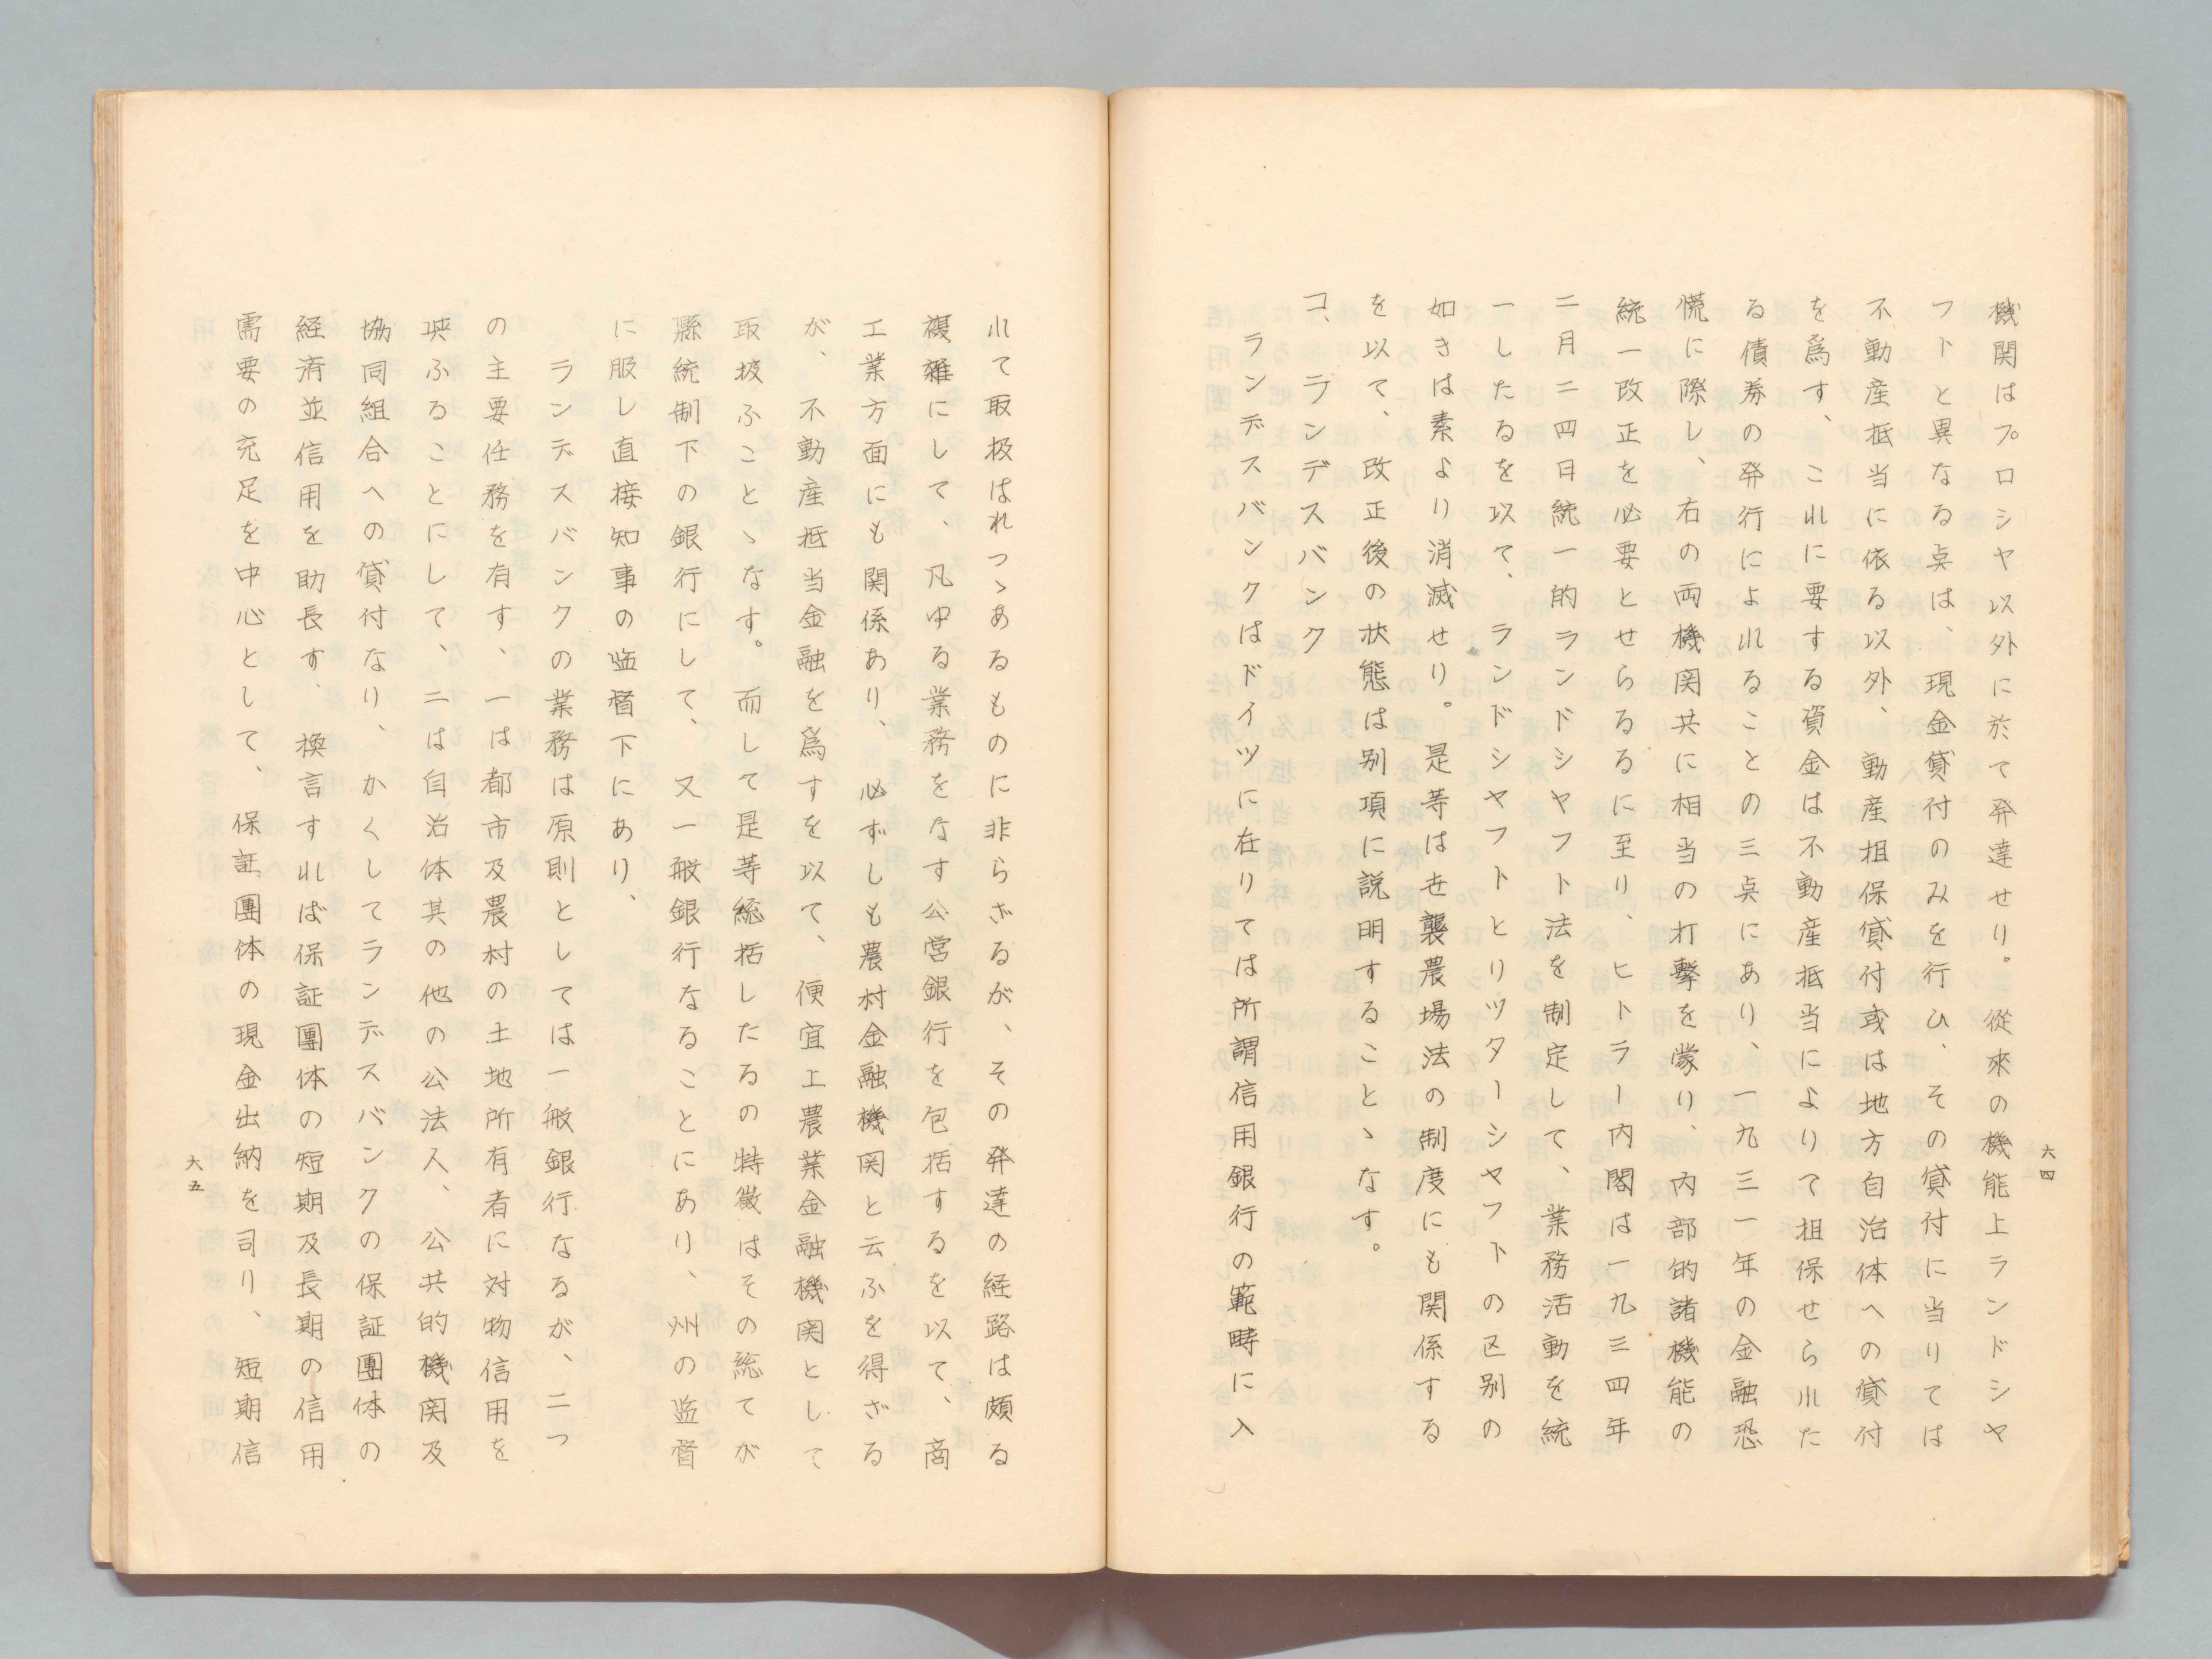 六四
機関はプロシヤ以外に於て発達せり。従來の機能上ランドシヤ
フトと異なる点は、現金貸付のみを行ひ、その貸付に当りては
不動産抵当に依る以外、動産担保貸付或は地方自治体への貸付
を爲す、これに要する資金は不動産抵当によりて担保せられた
る債券の発行によれることの三点にあり、一九三一年の金融恐
慌に際し、右の両機関共に相当の打撃を蒙り、内部的諸機能の
統一改正を必要とせらるるに至り、ヒトラー内閣は一九三四年
二月二四日統一的ランドシヤフト法を制定して、業務活動を統
一したるを以て、ランドシヤフトとリツターシヤフトの区別の
如きは素より消滅せり。是等は世襲農場法の制度にも関係する
を以て、改正後の状態は別項に説明することゝなす。
コ、ランデスバンク
ランデスバンクはドイツに在りては所謂信用銀行の範疇に入
れて取扱はれつゝあるものに非らざるが、その発達の経路は頗る
複雑にして、凡ゆる業務をなす公営銀行を包括するを以て、商
工業方面にも関係あり、必ずしも農村金融機関と云ふを得ざる
が、不動産抵当金融を爲すを以て、便宜上農業金融機関として
取扱ふことゝなす。而して是等総括したるの特徴はその総てが
縣統制下の銀行にして、又一般銀行なることにあり、州の監督
に服し直接知事の監督下にあり、
ランデスバンクの業務は原則としては一般銀行なるが、二つ
の主要任務を有す、一は都市及農村の土地所有者に対物信用を
與ふることにして、二は自治体其の他の公法人、公共的機関及
協同組合への貸付なり、かくしてランデスバンクの保証團体の
経済並信用を助長す、換言すれば保証團体の短期及長期の信用
需要の充足を中心として、保証團体の現金出納を司り、短期信
六五